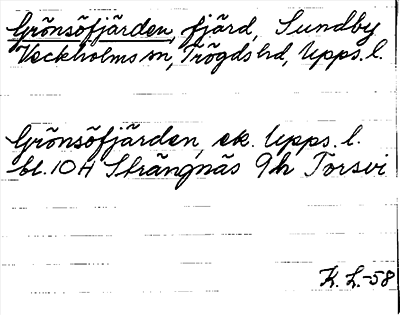 Grönsöfjärden, fjärd, Sundby
Veckholms sn, Trögds hd, Upps. l.
Grönsöfjärden, ek. Upps. l.
bl. 10 H Strängnäs 9h Torsvi
K. L. -58